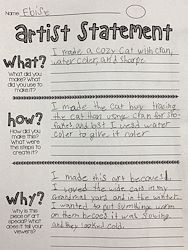 Name, Eloise
artist statement
what?
What did you make? What did you use to make it?
I made a cozy cat with cran,
water coler, and sharpe
how?
How did you make this? What were the steps to create it?
I made the cat buy tracing
the cat than using cran for
and I used water
coler to give it coler
why?
Why is this piece of art special? What does it tell your viewers?
I made this art because
I saved the cats in
yard and in the winter.
I wanted to put something warm
on them because it was
and they looked cold.